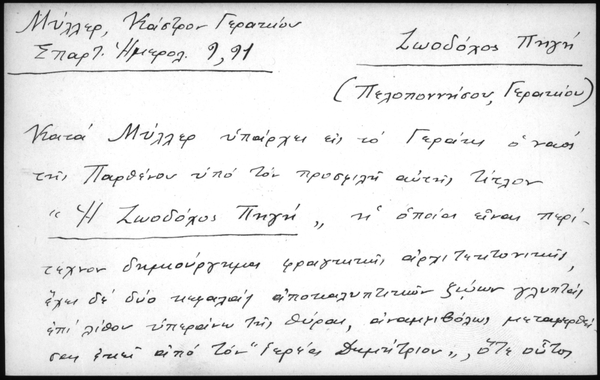 Μύλλερ, Κάστρον Γερακίου
Σπαρτ. Ημερολ. 9, 91
Ζωοδόχος Πηγή
(Πελοποννήσου, Γερακίου)
Κατά Μύλλερ υπάρχει εις τό Γεράκι ὁ ναός
τῆς Παρθένου υπό τόν προσφιλῆ αὐτῆς τίτλον
"Ἡ Ζωοδόχος Πηγή„ ἡ ὁποία εἶναι περί-
τεχνον δημιούργημα φραγκικῆς ἀρχιτεκτονικῆς,
ἔχει δέ δύο κεφαλάς ἀποκαλυπτικῶν ζώων γλυπτάς
ἐπί λίθου ὑπεράνω τῆς θύρας, ἀναμφιβόλως μεταφερθεί-
σας ἐκεῖ ἀπό τόν "Γεράκι Δημήτριον„, ὅτε οὗτος